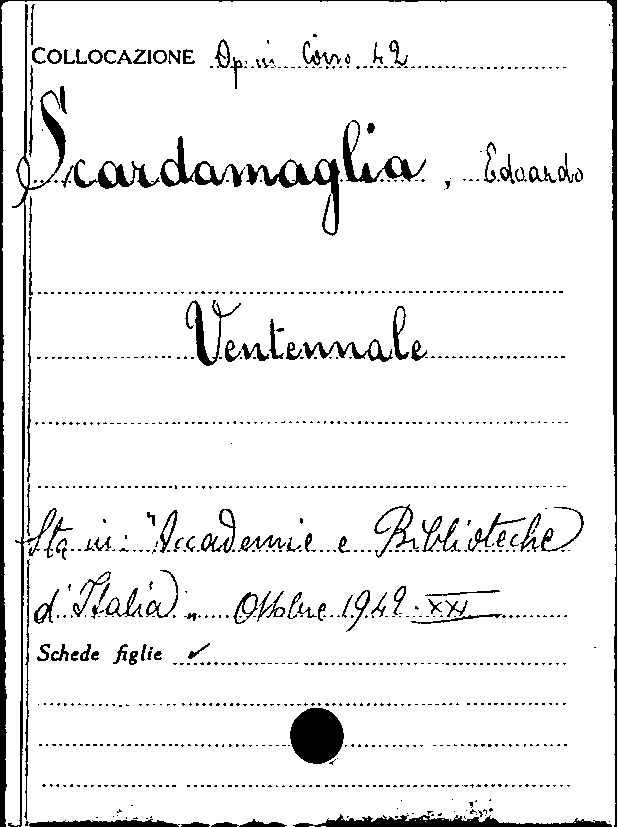 COLLOCAZIONE Op. in Corso 42
Scardamaglia, Edoardo
Ventennale
Sta in: "Accademie e Biblioteche
d'Italia" Ottobre 1942 · XXI
Schede figlie ✓